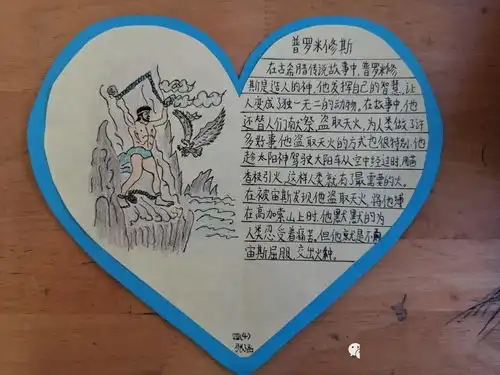 普罗米修斯
在古希腊传说故事中,普罗米修
斯是造人的神,他发挥自己的智慧,让
人变成了独一无二的动物。在故事中,他
还替人们献祭,盗取天火,为人类做了许
多好事。他盗取天火的方式也很特别,他
趁太阳神驾驶太阳车从空中经过时,用茴
香杆引火,这样人类就有了最需要的火。
在被宙斯发现他盗取天火,将他锁
在高加索山上时,他默默的为
人类忍受着痛苦。但他就是不向
宙斯屈服,交出火种。
四(4)